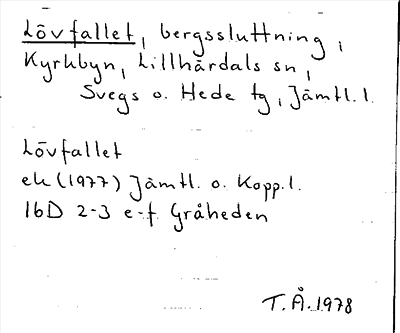 Lövfallet, bergssluttning,
Kyrkbyn, Lillhärdals sn,
Svegs o. Hede tg, Jämtl. l.
Lövfallet
ek (1977) Jämtl. o. Kopp. l.
16D 2-3 e-f Gråheden
T.Å. 1978